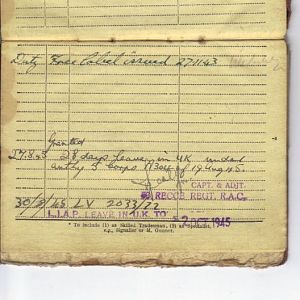 Duty Free Label issued 27/1/43
Granted
27.8.45 28 days leave in UK under
authy 5 Corps of 19 Aug 45.
CAPT. & ADJT.
RECCE REGT. R.A.C.
30/8/45 LV 2033/22
L.I.A.P. LEAVE IN U.K. TO 2 OCT 1945
* To include (1) as Skilled Tradesman, (2) as Specialist,
e.g., Signaller or M. Gunner.